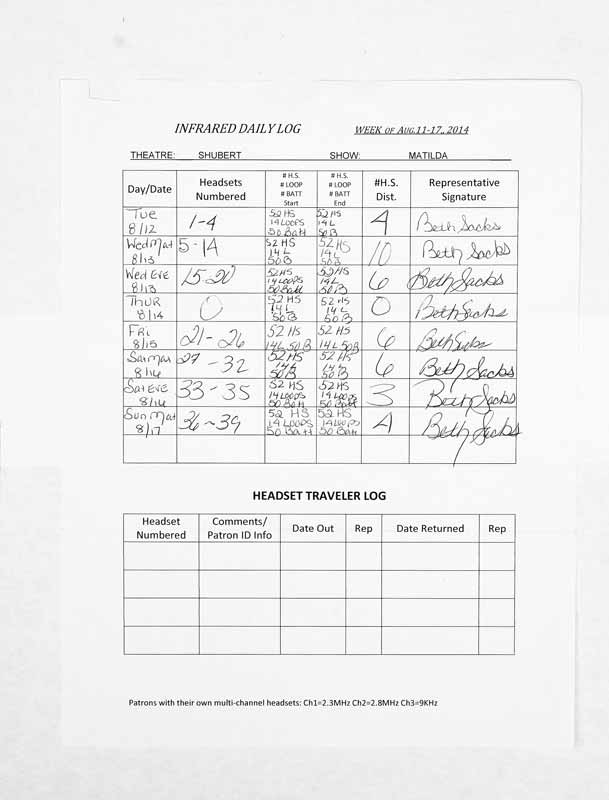 INFRARED DAILY LOG WEEK OF AUG.11-17, 2014
THEATRE: SHUBERT SHOW: MATILDA
Day/Date Headsets Numbered # H.S. # LOOP # BATT Start # H.S. # LOOP # BATT End #H.S. Dist. Representative Signature
Tue 8/12 1-4 52 HS 14 LOOPS 50 Batt 52 HS 14 L 50 B 4 Beth Sacks
Wed Mat 8/13 5-14 52 HS 14 L 50 B 52 HS 14 L 50 B 10 Beth Sacks
Wed Eve 8/13 15-20 52 HS 14 LOOPS 50 Batt 52 HS 14 L 50 B 6 Beth Sacks
THUR 8/14 0 52 HS 14 L 50 B 52 HS 14 L 50 B 0 Beth Sacks
FRI 8/15 21-26 52 HS 14 L 50 B 52 HS 14 L 50 B 6 Beth Sacks
Sat Mat 8/16 27-32 52 HS 14 L 50 B 52 HS 14 L 50 B 6 Beth Sacks
Sat Eve 8/16 33-35 52 HS 14 LOOPS 50 Batt 52 HS 14 LOOPS 50 Batt 3 Beth Sacks
Sun Mat 8/17 36-39 52 HS 14 LOOPS 50 Batt 52 HS 14 LOOPS 50 Batt 4 Beth Sacks
HEADSET TRAVELER LOG
Headset Numbered Comments/ Patron ID Info Date Out Rep Date Returned Rep
Patrons with their own multi-channel headsets: Ch1=2.3MHz Ch2=2.8MHz Ch3=9KHz